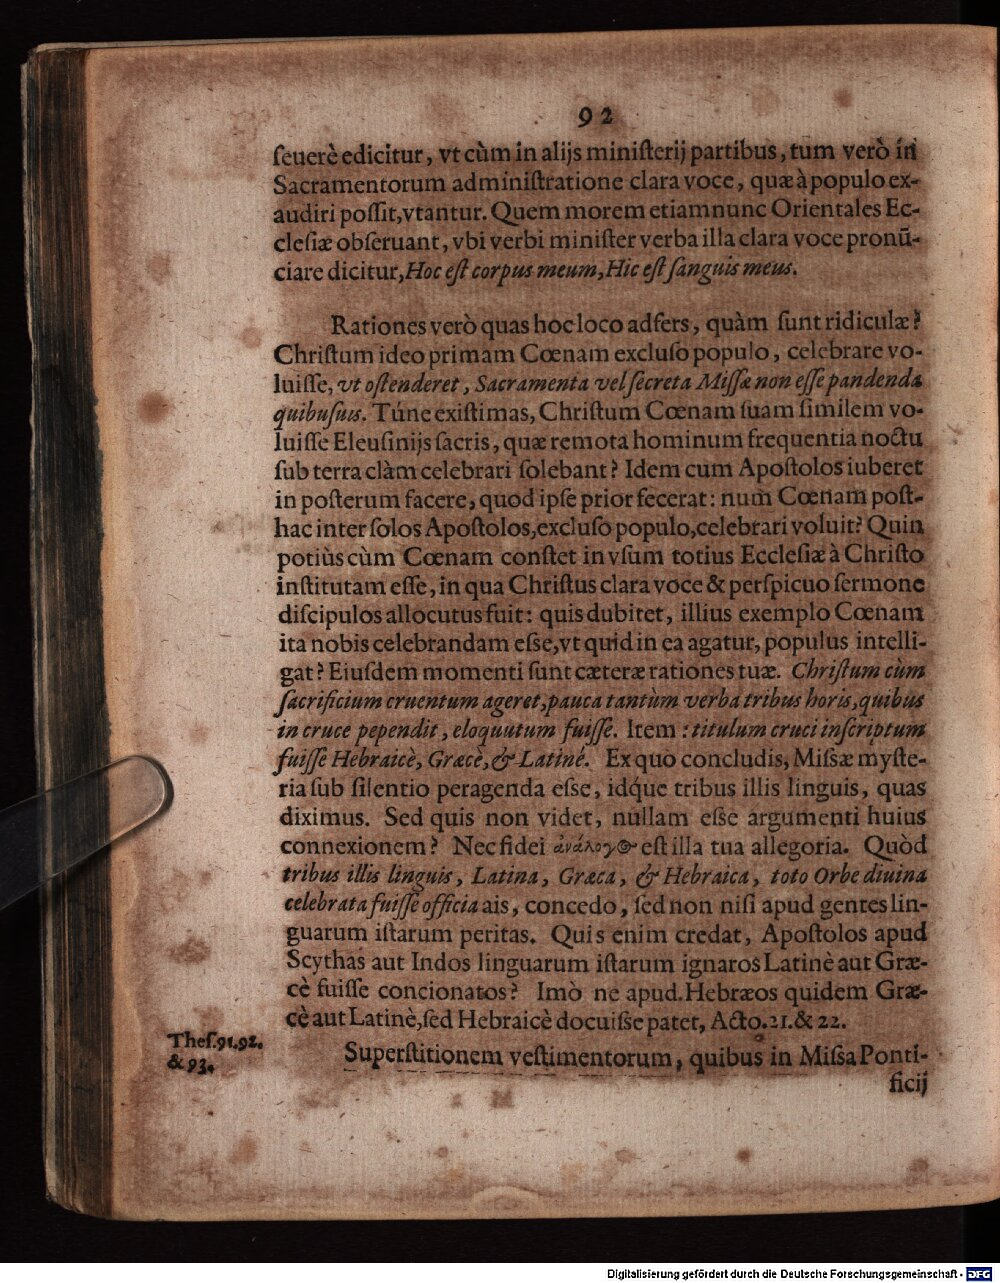 92
ſeuerè edicitur, vt cùm in alijs miniſterij partibus, tum verò in
Sacramentorum adminiſtratione clara voce, quæ à populo ex-
audiri poſſit, vtantur. Quem morem etiamnunc Orientales Ec-
cleſiæ obſeruant, vbi verbi miniſter verba illa clara voce pronũ-
ciare dicitur, Hoc eſt corpus meum, Hic eſt ſanguis meus.
Rationes verò quas hoc loco adfers, quàm ſunt ridiculæ?
Chriſtum ideo primam Cœnam excluſo populo, celebrare vo-
luiſſe, vt oſtenderet, Sacramenta vel ſecreta Miſſæ non eſſe pandenda
quibuſuis. Túne exiſtimas, Chriſtum Cœnam ſuam ſimilem vo-
luiſſe Eleuſinijs ſacris, quæ remota hominum frequentia noctu
ſub terra clàm celebrari ſolebant? Idem cum Apoſtolos iuberet
in poſterum facere, quod ipſe prior fecerat: num Cœnam poſt-
hac inter ſolos Apoſtolos, excluſo populo, celebrari voluit? Quin
potiùs cùm Cœnam conſtet in vſum totius Eccleſiæ à Chriſto
inſtitutam eſſe, in qua Chriſtus clara voce & perſpicuo ſermone
diſcipulos allocutus fuit: quis dubitet, illius exemplo Cœnam
ita nobis celebrandam eſse, vt quid in ea agatur, populus intelli-
gat? Eiuſdem momenti ſunt cæteræ rationes tuæ. Chriſtum cùm
ſacrificium cruentum ageret, pauca tantùm verba tribus horis, quibus
in cruce pependit, eloquutum fuiſſe. Item: titulum cruci inſcriptum
fuiſſe Hebraicè, Græcè, & Latinè. Ex quo concludis, Miſsæ myſte-
ria ſub ſilentio peragenda eſse, idq́ue tribus illis linguis, quas
diximus. Sed quis non videt, nullam eſse argumenti huius
connexionem? Nec fidei ἀνάλογος eſt illa tua allegoria. Quòd
tribus illis linguis, Latina, Græca, & Hebraica, toto Orbe diuina
celebrata fuiſſe officia ais, concedo, ſed non niſi apud gentes lin-
guarum iſtarum peritas. Quis enim credat, Apoſtolos apud
Scythas aut Indos linguarum iſtarum ignaros Latinè aut Græ-
cè fuiſſe concionatos? Imò ne apud Hebræos quidem Græ-
cè aut Latinè, ſed Hebraicè docuiſse patet, Acto. 21. & 22.
Theſ. 91. 92.
& 93.
Superſtitionem veſtimentorum, quibus in Miſsa Ponti-
ficij
Digitalisierung gefördert durch die Deutsche Forschungsgemeinschaft - DFG